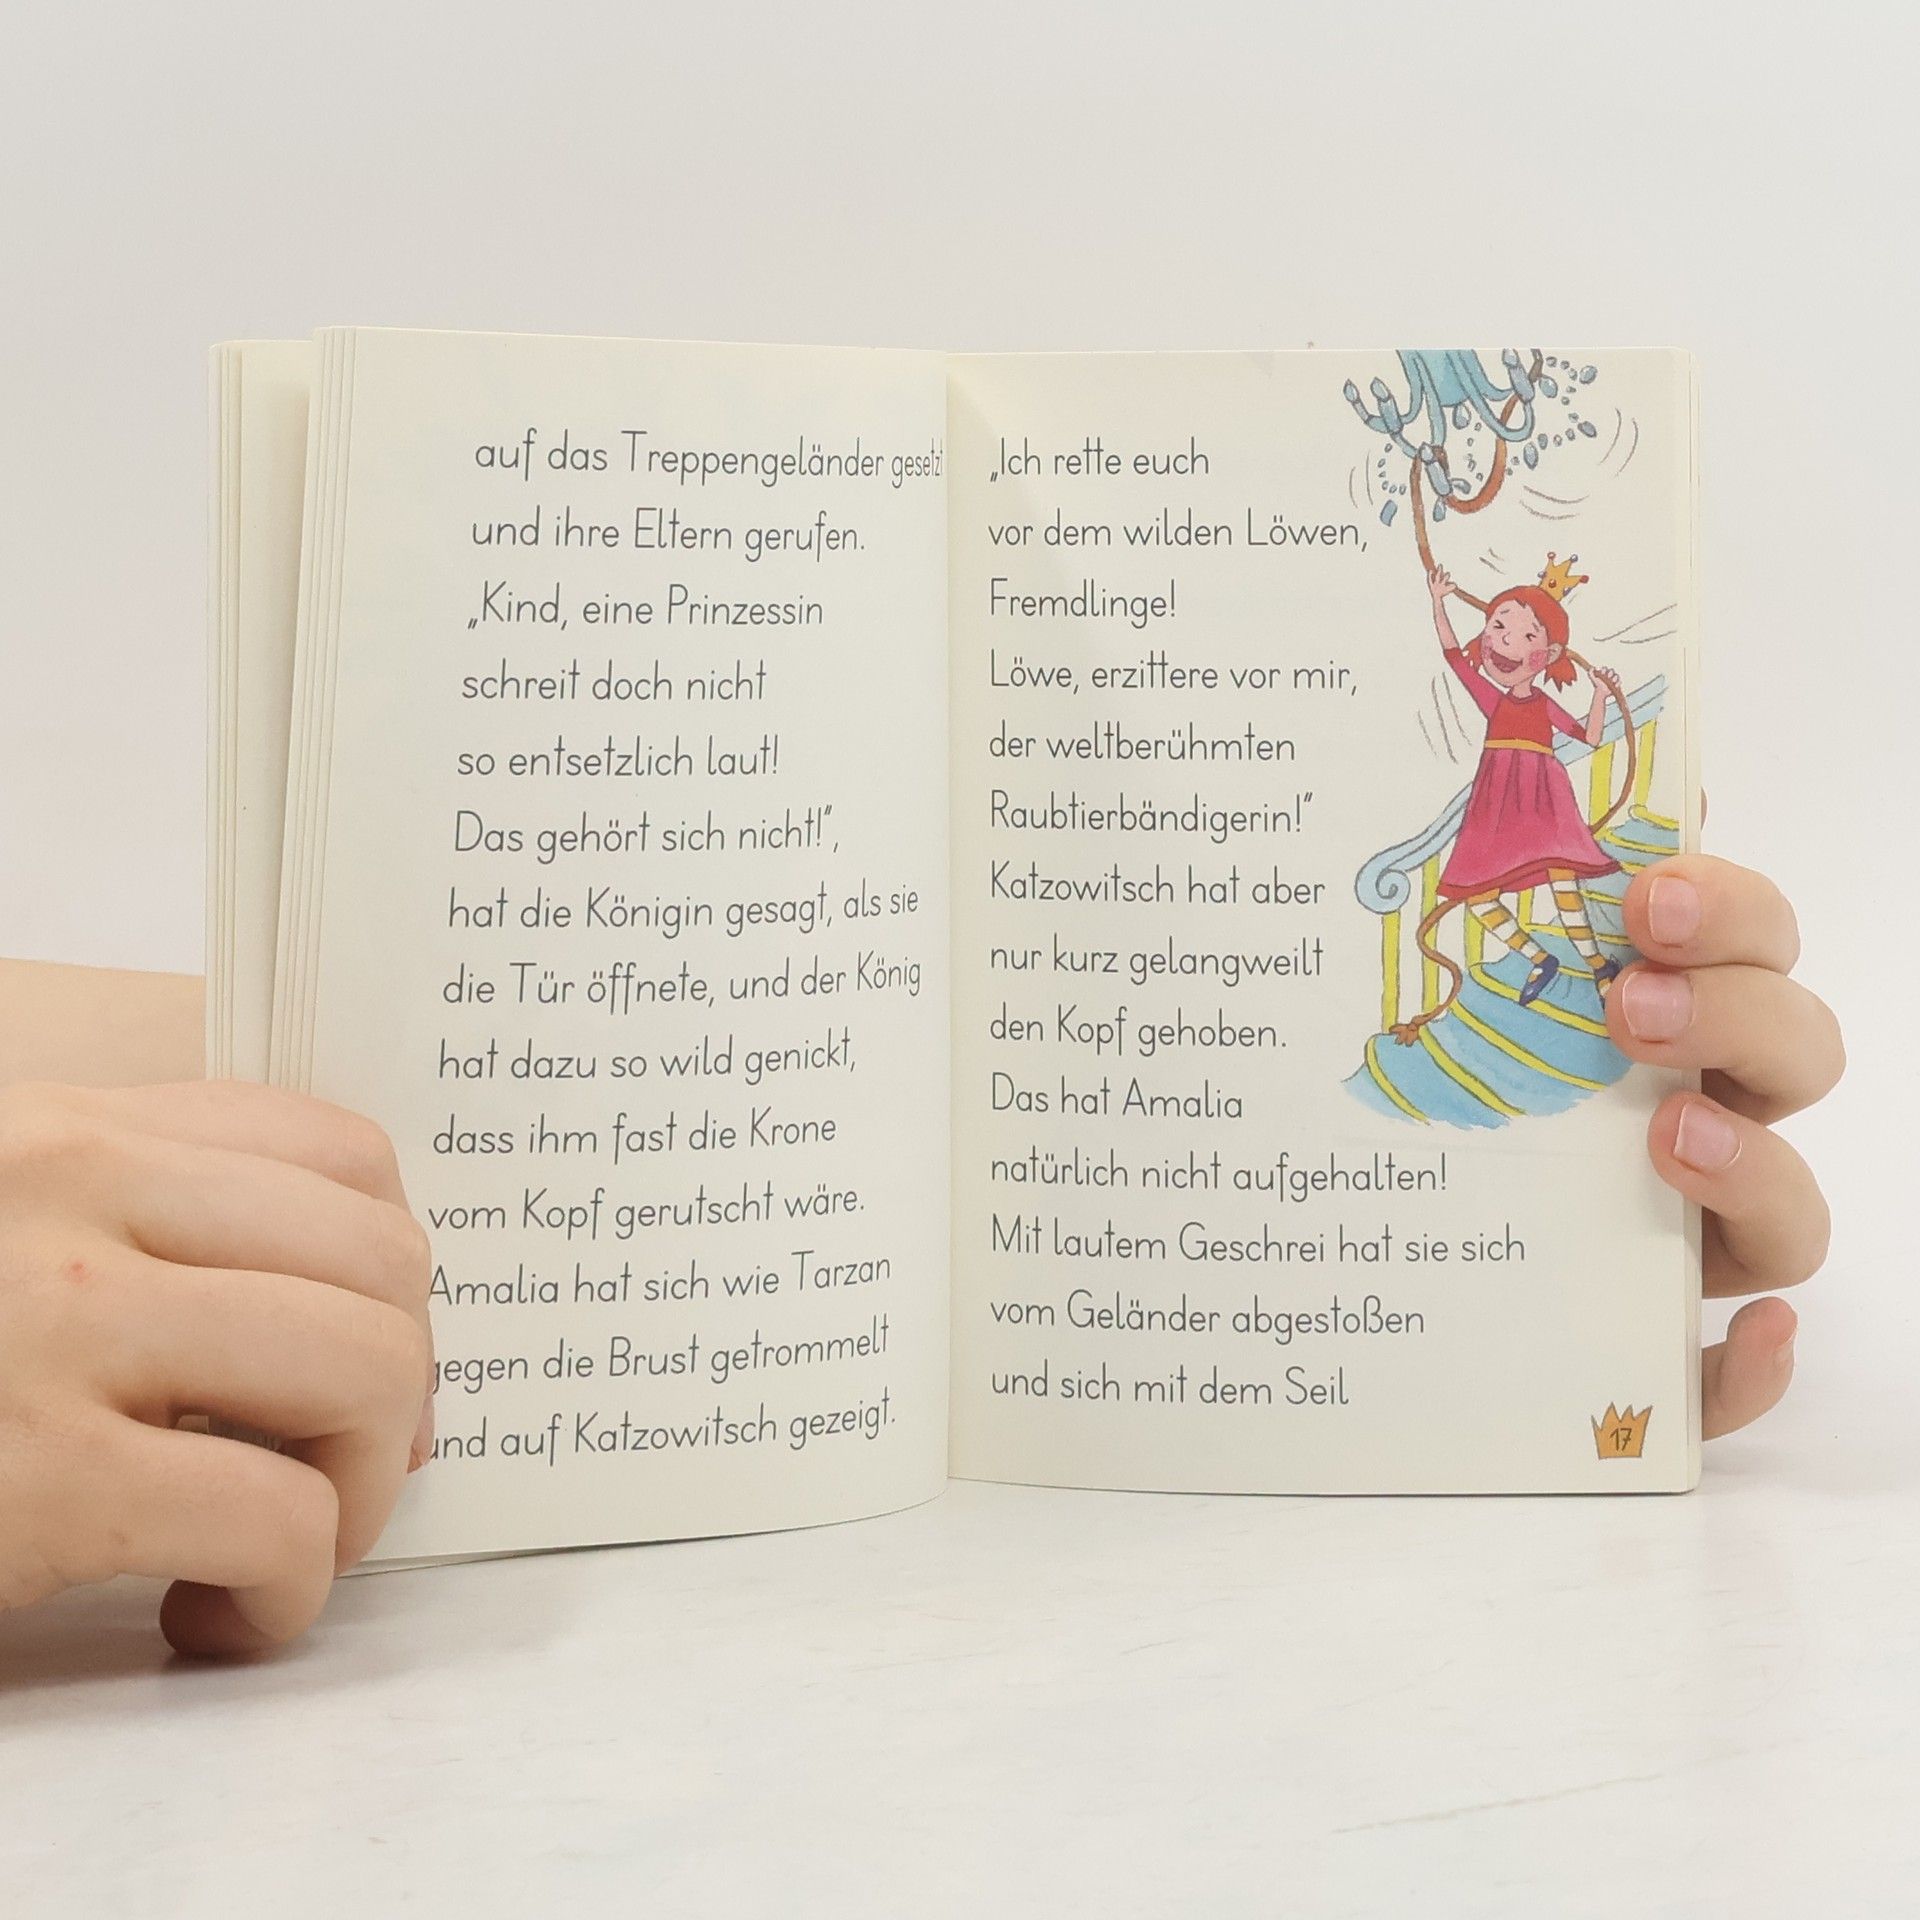 auf das Treppengeländer gesetzt
und ihre Eltern gerufen.
„Kind, eine Prinzessin
schreit doch nicht
so entsetzlich laut!
Das gehört sich nicht!“,
hat die Königin gesagt, als sie
die Tür öffnete, und der König
hat dazu so wild genickt,
dass ihm fast die Krone
vom Kopf gerutscht wäre.
Amalia hat sich wie Tarzan
gegen die Brust getrommelt
und auf Katzowitsch gezeigt.
„Ich rette euch
vor dem wilden Löwen,
Fremdlinge!
Löwe, erzittere vor mir,
der weltberühmten
Raubtierbändigerin!“
Katzowitsch hat aber
nur kurz gelangweilt
den Kopf gehoben.
Das hat Amalia
natürlich nicht aufgehalten!
Mit lautem Geschrei hat sie sich
vom Geländer abgestoßen
und sich mit dem Seil
17